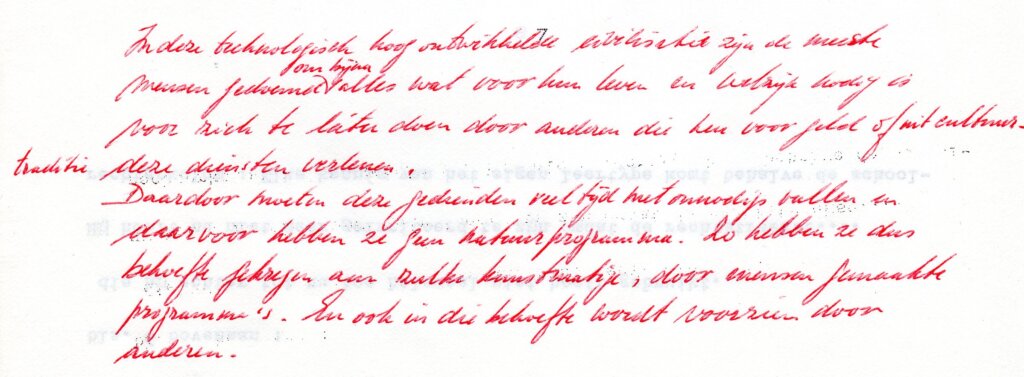 In deze technologisch hoog ontwikkelde civilisatie zijn de meeste
om bijna
mensen gedoemd alles wat voor hun leven en welzijn nodig is
voor zich te láten doen door anderen die hen voor geld of uit cultuur-
traditie deze diensten verlenen.
Daardoor moeten deze gedienden veel tijd met onnodigs vullen en
daarvoor hebben ze geen natuurprogramma. Zo hebben ze dus
behoefte gekregen aan zulke kunstmatige, door mensen gemaakte
programma's. En ook in die behoefte wordt voorzien door
anderen.